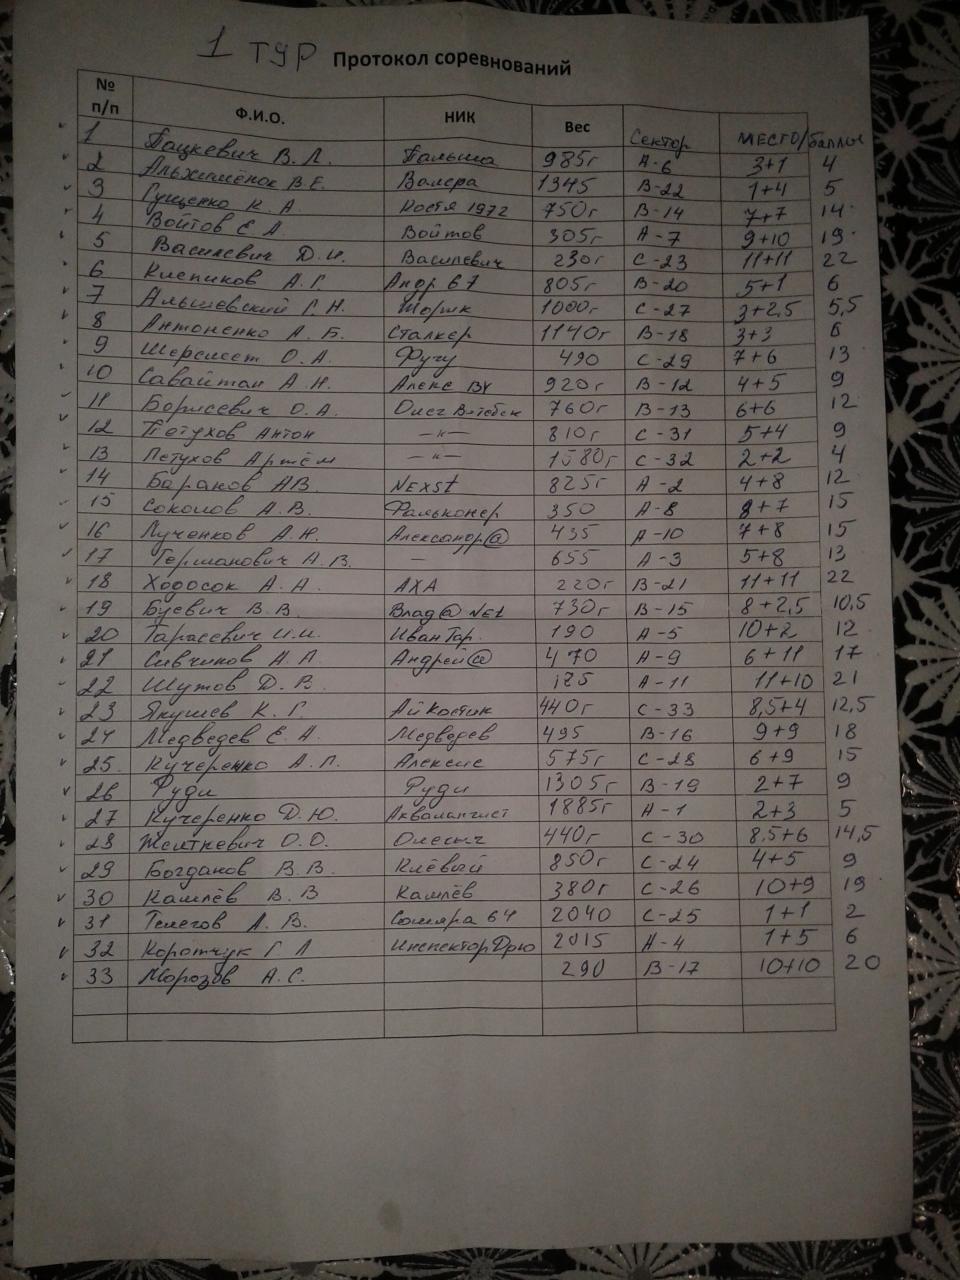 1 ТУР Протокол соревнований
№ п/п Ф.И.О. НИК Вес Сектор МЕСТО/баллы
1 Пацкевич В.Л. Пальша 985г А-6 3+1 4
2 Альхимёнок В.Е. Валера 1345 В-22 1+4 5
3 Гущенко К.А. Костя 1972 750г В-14 7+7 14
4 Войтов Е А Войтов 305г А-7 9+10 19
5 Василевич Д.И. Василевич 230г С-23 11+11 22
6 Клепиков А.Г. Андр 67 805г В-20 5+1 6
7 Альшевский Г.Н. Шорик 1000г С-27 3+2,5 5,5
8 Антоненко А.Б. Сталкер 1140г В-18 3+3 6
9 Шеремет О.А. Фучу 490 С-29 7+6 13
10 Савайтан А.Н. Алекс BY 920г В-12 4+5 9
11 Борисевич О.А. Олег Витебск 760г В-13 6+6 12
12 Петухов Антон —"— 810г С-31 5+4 9
13 Петухов Артём —"— 1580г С-32 2+2 4
14 Баранов А.В. Nexst 825г А-2 4+8 12
15 Соколов А.В. Фальконер 350 А-8 8+7 15
16 Лученков А.Н. Александр@ 435 А-10 7+8 15
17 Германович А.В. — 655 А-3 5+8 13
18 Ходосок А.А. АХА 220г В-21 11+11 22
19 Буевич В.В. Влад@NEt 730г В-15 8+2,5 10,5
20 Тарасевич И.И. Иван Тар. 190 А-5 10+2 12
21 Сивчиков А.А. Андрей@ 470 А-9 6+11 17
22 Шутов Д.В. 185 А-11 11+10 21
23 Якушев К.Г. Ай Костик 440г С-33 8,5+4 12,5
24 Медведев Е.А. Медведев 495 В-16 9+9 18
25. Кучеренко А.П. Алексис 575г С-28 6+9 15
26 Руди Руди 1305г В-19 2+7 9
27 Кучеренко Д.Ю. Аквалангист 1885г А-1 2+3 5
28 Желткевич О.О. Олесыч 440г С-30 8.5+6 14,5
29 Богданов В.В. Клёвый 850г С-24 4+5 9
30 Камлёв В.В Камлёв 380г С-26 10+9 19
31 Телегов А.В. Сомяра 64 2040 С-25 1+1 2
32 Коротчук Г Л Инспектор Дрю 2015 А-4 1+5 6
33 Морозов А.С. 290 В-17 10+10 20